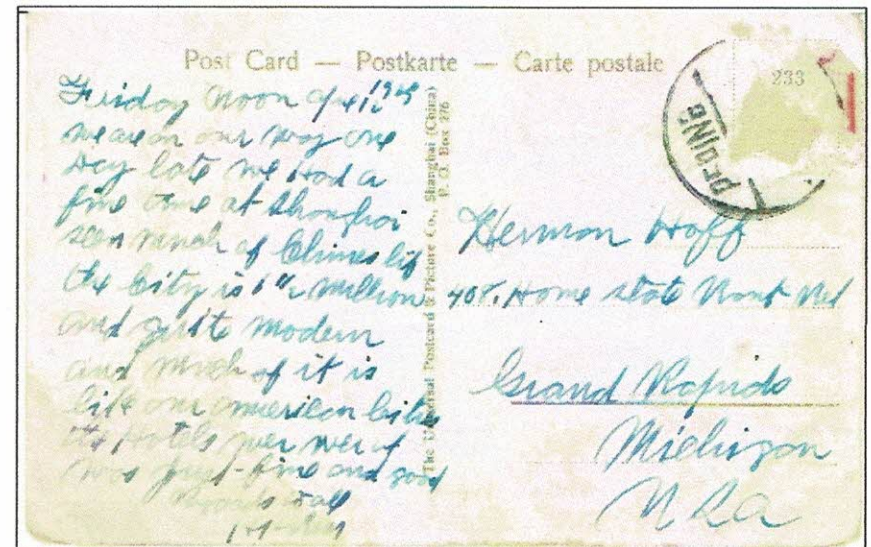 Post Card — Postkarte — Carte postale
233
PEKING
Friday Noon
we are on our way one
Day late we Had a
fine time at Shanghai
seen much of Chines life
the City is 1 1/2 Million
and quite modern
and much of it is
like our american Cities
the Hotels
was just fine and good
The Universal Postcard & Picture Co., Shanghai (China)
P. O. Box 276
Herman Hoff
Home state Bank
Grand Rapids
Michigan